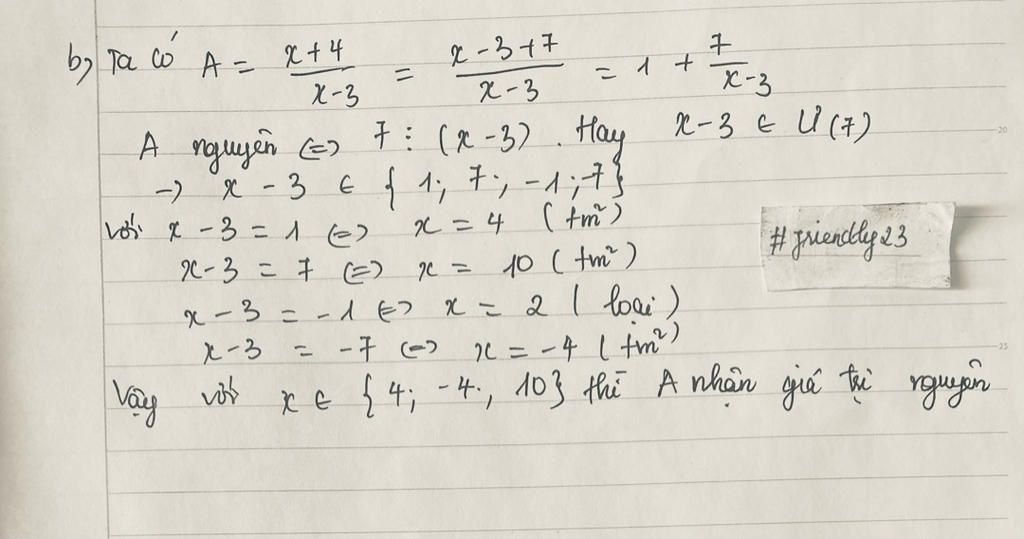 b, Ta có A = \frac{x+4}{x-3} = \frac{x-3+7}{x-3} = 1 + \frac{7}{x-3}
A nguyên <=> 7 ⋮ (x-3). Hay x-3 ∈ Ư(7)
-> x - 3 ∈ { 1; 7; -1; -7}
với x - 3 = 1 <=> x = 4 (tm²)
#friendly23
x-3 = 7 <=> x = 10 (tm²)
x - 3 = -1 <=> x = 2 ( loại )
x-3 = -7 <=> x = -4 (tm²)
Vậy với x ∈ {4; -4; 10} thì A nhận giá trị nguyên